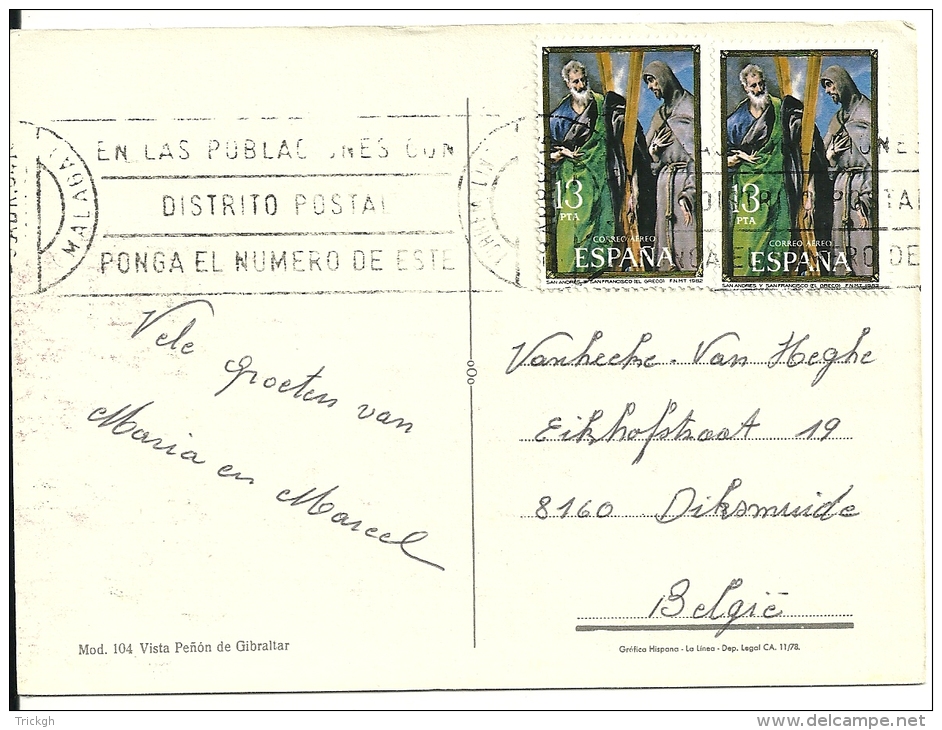 EN LAS POBLAC  NES CON
DISTRITO POSTAL
PONGA EL NUMERO DE ESTE
MALAGA
13
PTA
CORREO AEREO
ESPAÑA
SAN ANDRES Y SAN FRANCISCO (EL GRECO) F.N.M.T. 1982
13
PTA
CORREO AEREO
ESPAÑA
SAN ANDRES Y SAN FRANCISCO (EL GRECO) F.N.M.T. 1982
Vele
groeten van
Maria en Marcel
Vanhecke - Van Heghe
Eikhofstraat 19
8160 Diksmuide
België
Mod. 104 Vista Peñón de Gibraltar
Gráfica Hispana - La Línea - Dep. Legal CA. 11/78.
Trickgh
delcampe.net